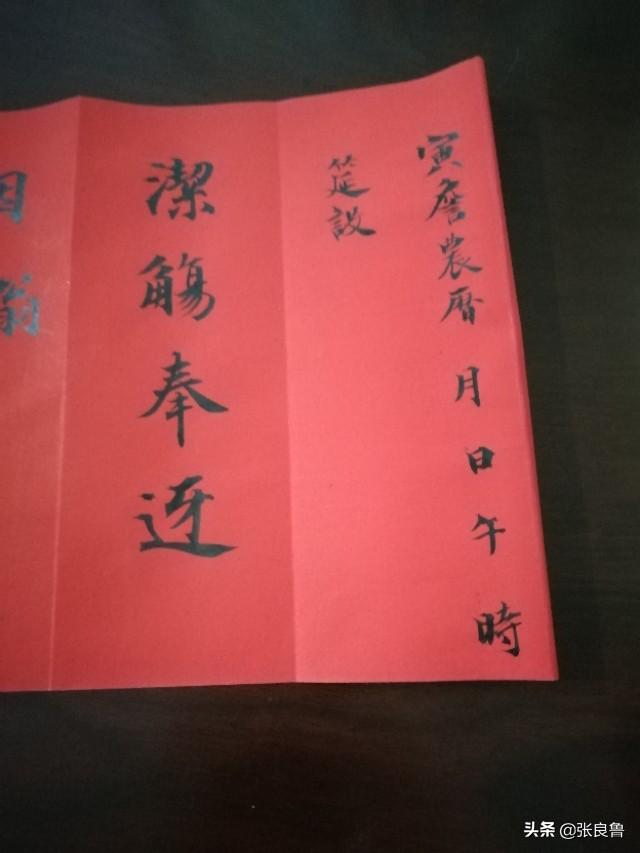 寅詹農曆 月 日 午 時
筵設
潔觴奉迓
因翁
头条 @张良鲁